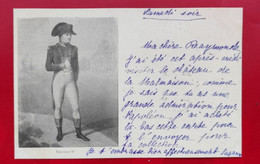 Samedi soir
Ma chère Raymonde
j'ai été cet après-midi
visiter le château de
la Malmaison ; comme
je sais que tu as une
grande admiration pour
Napoléon, je t'ai acheté
là-bas cette carte pour
t' envoyer pour
ta collection.
Je t'embrasse bien affectueusement
Napoléon Ier